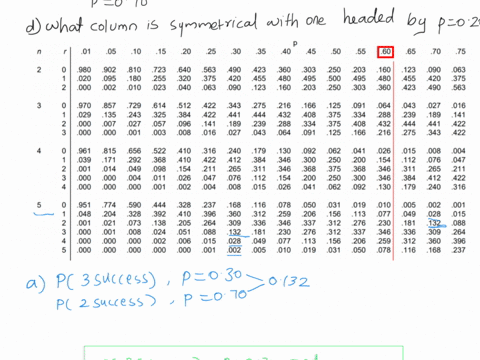 P=0.70
d) What column is symmetrical with one headed by p=0.20
P
n r .01 .05 .10 .15 .20 .25 .30 .35 .40 .45 .50 .55 .60 .65 .70 .75
2 0 .980 .902 .810 .723 .640 .563 .490 .423 .360 .303 .250 .203 .160 .123 .090 .063
1 .020 .095 .180 .255 .320 .375 .420 .455 .480 .495 .500 .495 .480 .455 .420 .375
2 .000 .002 .010 .023 .040 .063 .090 .123 .160 .203 .250 .303 .360 .423 .490 .563
3 0 .970 .857 .729 .614 .512 .422 .343 .275 .216 .166 .125 .091 .064 .043 .027 .016
1 .029 .135 .243 .325 .384 .422 .441 .444 .432 .408 .375 .334 .288 .239 .189 .141
2 .000 .007 .027 .057 .096 .141 .189 .239 .288 .334 .375 .408 .432 .444 .441 .422
3 .000 .000 .001 .003 .008 .016 .027 .043 .064 .091 .125 .166 .216 .275 .343 .422
4 0 .961 .815 .656 .522 .410 .316 .240 .179 .130 .092 .062 .041 .026 .015 .008 .004
1 .039 .171 .292 .368 .410 .422 .412 .384 .346 .300 .250 .200 .154 .112 .076 .047
2 .001 .014 .049 .098 .154 .211 .265 .311 .346 .368 .375 .368 .346 .311 .265 .211
3 .000 .000 .004 .011 .026 .047 .076 .112 .154 .200 .250 .300 .346 .384 .412 .422
4 .000 .000 .000 .001 .002 .004 .008 .015 .026 .041 .062 .092 .130 .179 .240 .316
5 0 .951 .774 .590 .444 .328 .237 .168 .116 .078 .050 .031 .019 .010 .005 .002 .001
1 .048 .204 .328 .392 .410 .396 .360 .312 .259 .206 .156 .113 .077 .049 .028 .015
2 .001 .021 .073 .138 .205 .264 .309 .336 .346 .337 .312 .276 .230 .181 .132 .088
3 .000 .001 .008 .024 .051 .088 .132 .181 .230 .276 .312 .337 .346 .336 .309 .264
4 .000 .000 .000 .002 .006 .015 .028 .049 .077 .113 .156 .206 .259 .312 .360 .396
5 .000 .000 .000 .000 .000 .001 .002 .005 .010 .019 .031 .050 .078 .116 .168 .237
a) P( 3 success) , P=0.30
0.132
P( 2 success) , P=0.70